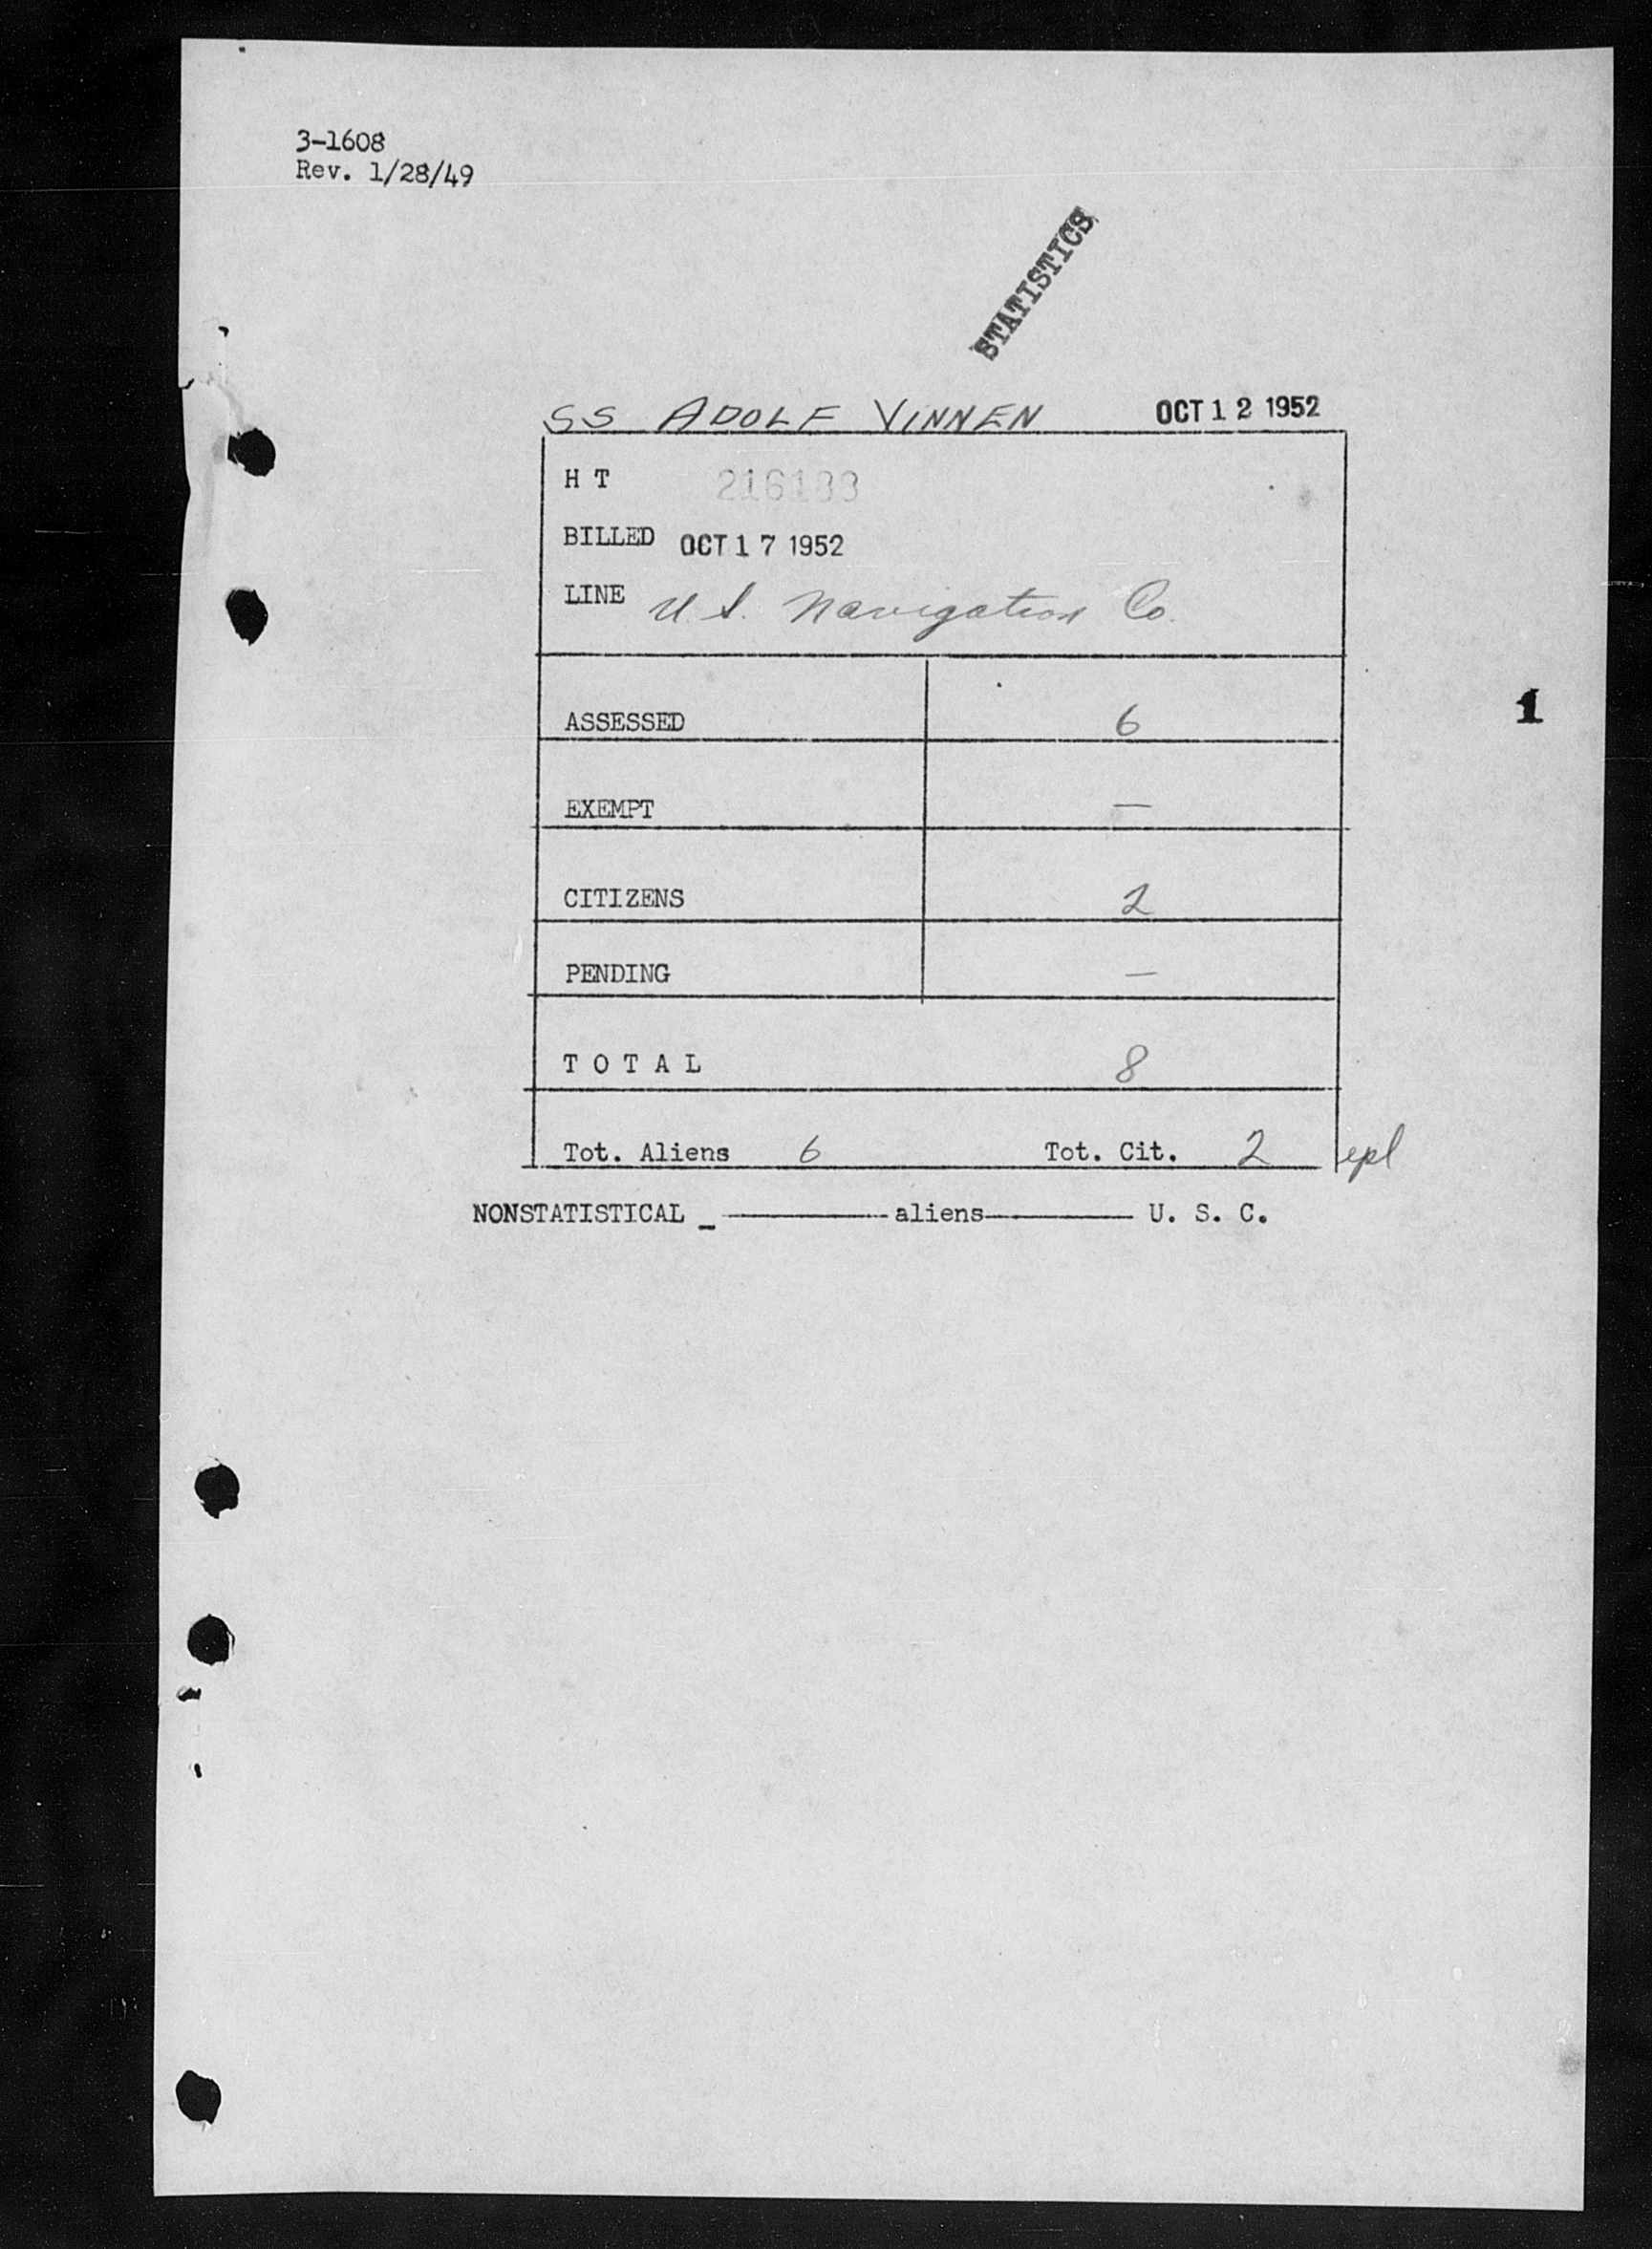 3-1608
Rev. 1/28/49
STATISTICS
SS ADOLF VINNEN OCT 12 1952
H T
BILLED OCT 17 1952
LINE U.S. Navigation Co.
1
ASSESSED 6
EXEMPT —
CITIZENS 2
PENDING —
T O T A L 8
Tot. Aliens 6 Tot. Cit. 2 epl
NONSTATISTICAL _ ———— aliens———— U. S. C.